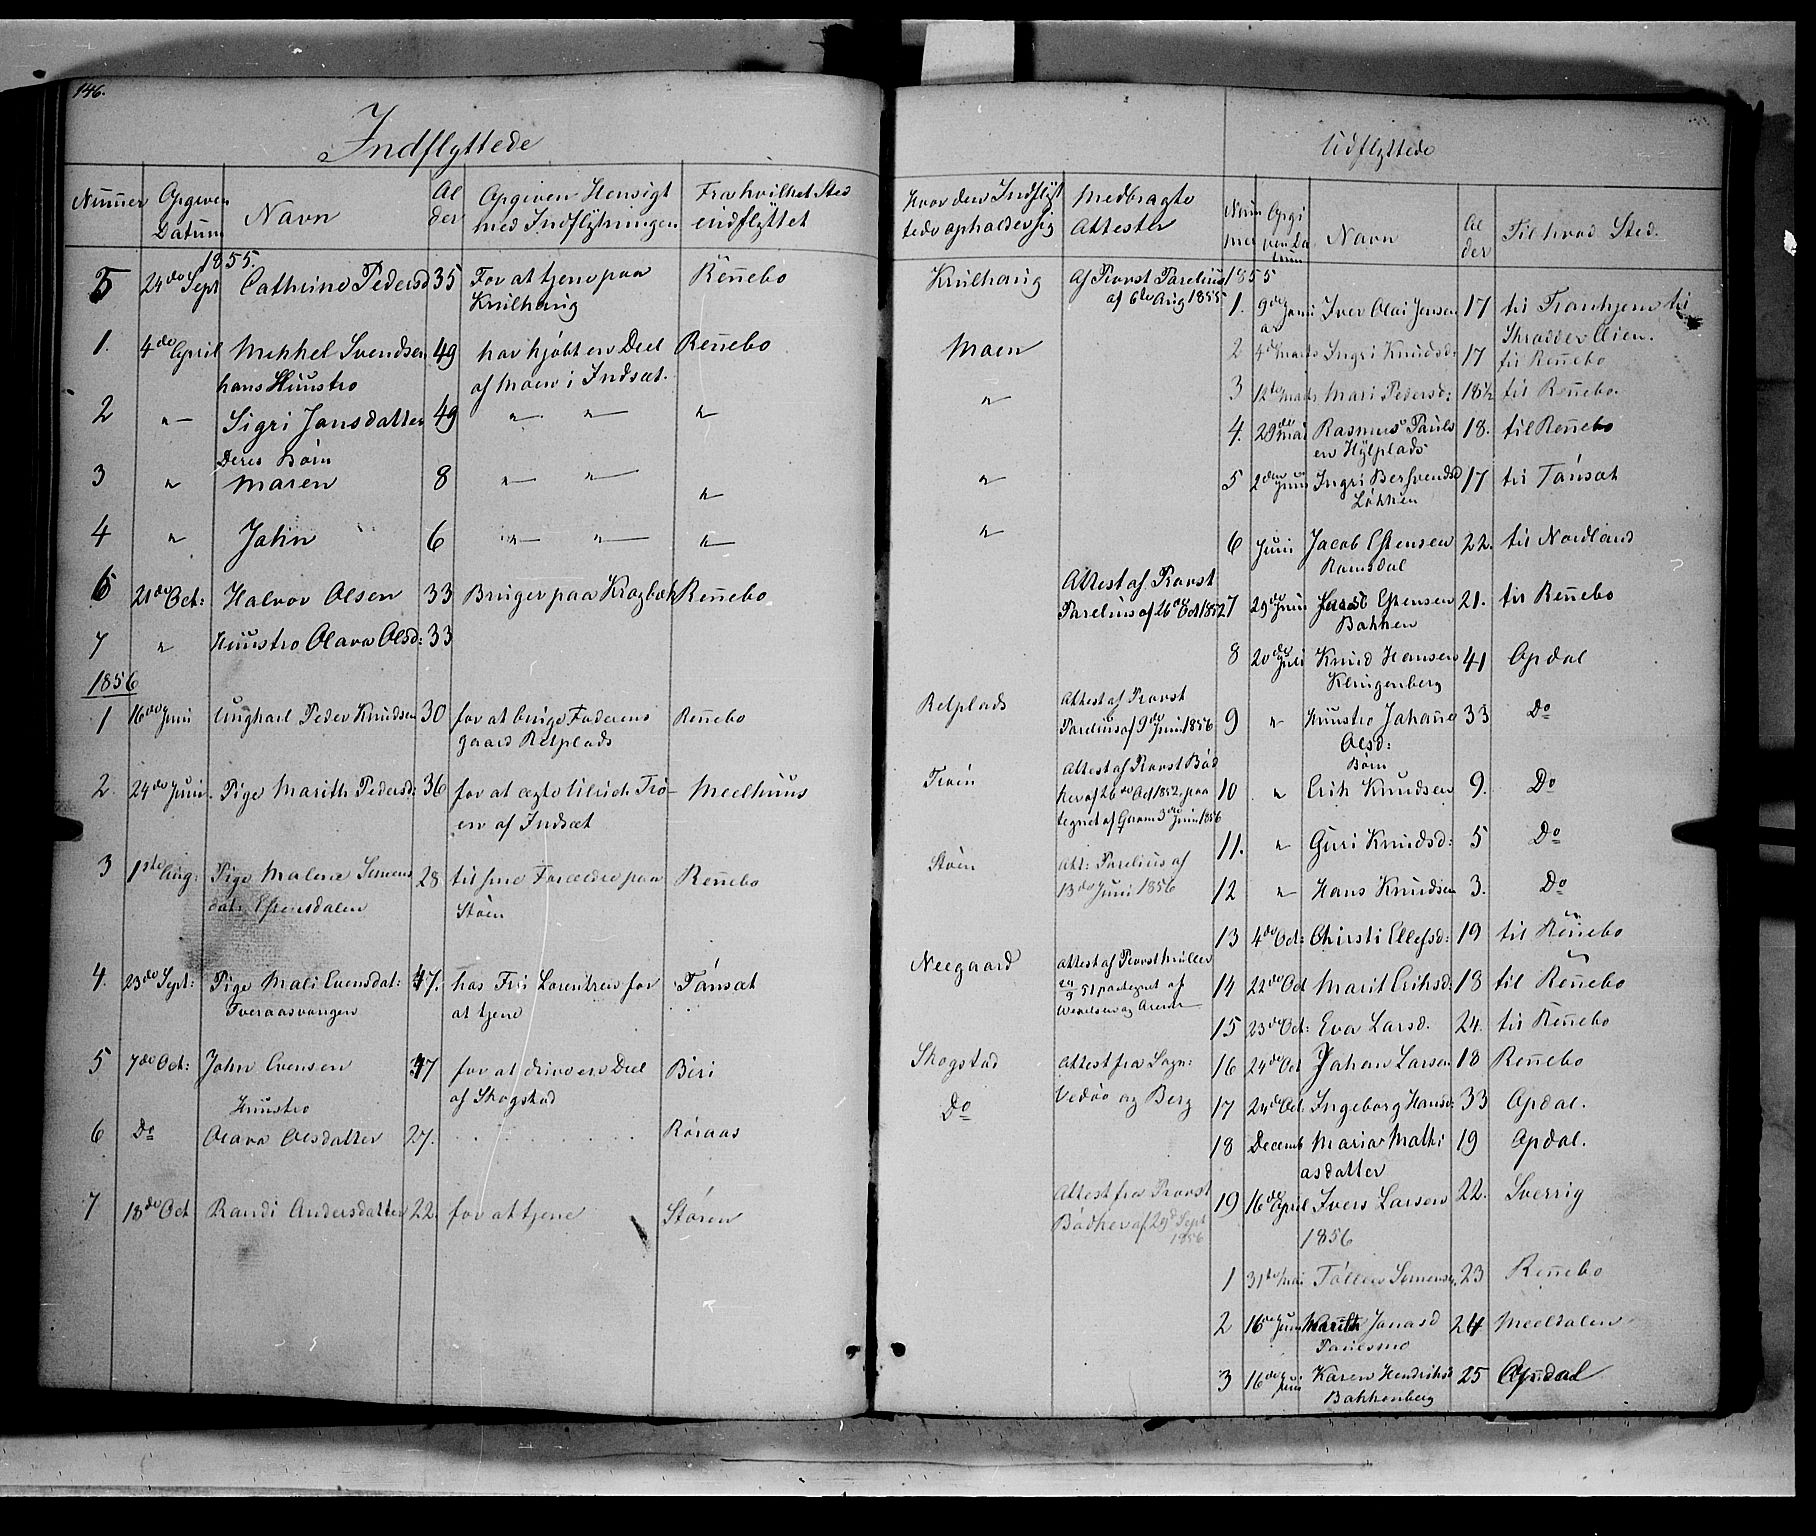 146.
Indflyttede
Nummer
Opgiven Datum
Navn
Al der
Opgiven Hensigt med Indflytningen
Fra hvilket Sted indflyttet
Hvor den Indflyt tede opholder sig
Medbragte Attester
1855.
5 24de Sept Cathrine Pedersd 35 For at tjene paa Rennebo Af Provst Parelius
af 6te Aug 1855
1. 4de April Mekkel Svendsen 49 har kjøbt en Deel Rennebo Moen
hans Huustro af Moen i Indsæt.
2 " Sigri Jonsdatter 49 " " " "
Deres Børn
3 " Maren 8 " " " "
4 " John 6 " " " "
6 21de Oct: Halvor Olsen 33 Bruger paa Rennebo Attest af Provst
Parelius af 26de Oct 1852
7 " Huustro Olava Olsd: 33
1856
1 16de Juni Ungkarl Peder Knudsen 30 for at bruge Faderens Rennebo Relplads Attest af Provst
gaard Relplads Parelius af 9de Juni 1856
2. 24de Juni Pige Marith Pedersd: 36 for at ægte Meelhuus Attest af Provst Bød
en af Indsæt ker af 26de Oct 1852, paa
tegnet af 3die Juni 1856
3 1ste Aug: Pige Malene 28 til sine Forældre paa Rennebo Støen Att: Parelius af
datr Estensdalen Støen 13de Juni 1856
4. 23de Sept: Pige Mali Evensdat: 47. hos Lorentzen for Tønsæt Neegaard Attest af Provst Müller
Tveraasvangen at tjene 51 paategnet af
5 7de Oct: John Evensen 37 for at drive en Deel Biri Skogstad Attest fra Sogn:
af Skogstad Vedøe og Berg
Huustro
6 Do Olava Olsdatter 27. Røraas Do
7 18de Oct Randi Andersdatter 22. for at tjene Støren Attest fra Provst
Bødker af 29d Sept
1856
Udflyttede
Num mer
Opgi ven Da tum
Navn
Al der
Til hvad Sted.
1855
1. 9de Janu ar Iver Olai Jensen 17 til Tronhjem til
Skrædder
2 4de Marts Ingri Knudsd: 17 til Rennebo
3 12te Marts Mari Pedersd: 18½ til Rennebo.
4. 29de Mai Rasmus Pauls 18. til Rennebo
en Hylplads
5 2den Juni Ingri Bersvendsd 17 til Tønsæt
Løkken
6 Juni Jacob Estensen 22. til Nordland
Ramsdal
7 29de Juni Estensen 21. til Rennebo
Bakken
8 20de Juli Knud Hansen 41 Opdal
Klingenberg
9 " Huustro Johanne 33 Do
Olsd:
Børn
10 " Erik Knudsen 9. Do
11. " Guri Knudsd: 5 Do
12 " Hans Knudsen 3. Do
13 4de Oct: Chirsti Ellefsd: 19 til Rennebo
14 22de Oct Marit Eriksd: 18 til Rennebo
15 23de Oct: Eva Larsd. 24. til Rennebo
16 24de Oct Johan Larsen 18 Rennebo
17 24de Oct: Ingeborg Hansd: 33 Opdal.
18 Decemb Maria Mathi 19 Opdal.
asdatter
19 16de April Ivers Larsen 22. Sverrig
1856
1 31te Mai Tollev Simensen 23 Rennebo
2 16de Juni Marith Jonasd 24 Meeldalen
Paulsmo
3 16de Juni Karen Hendriksd 25 Opdal
Bakkenberg